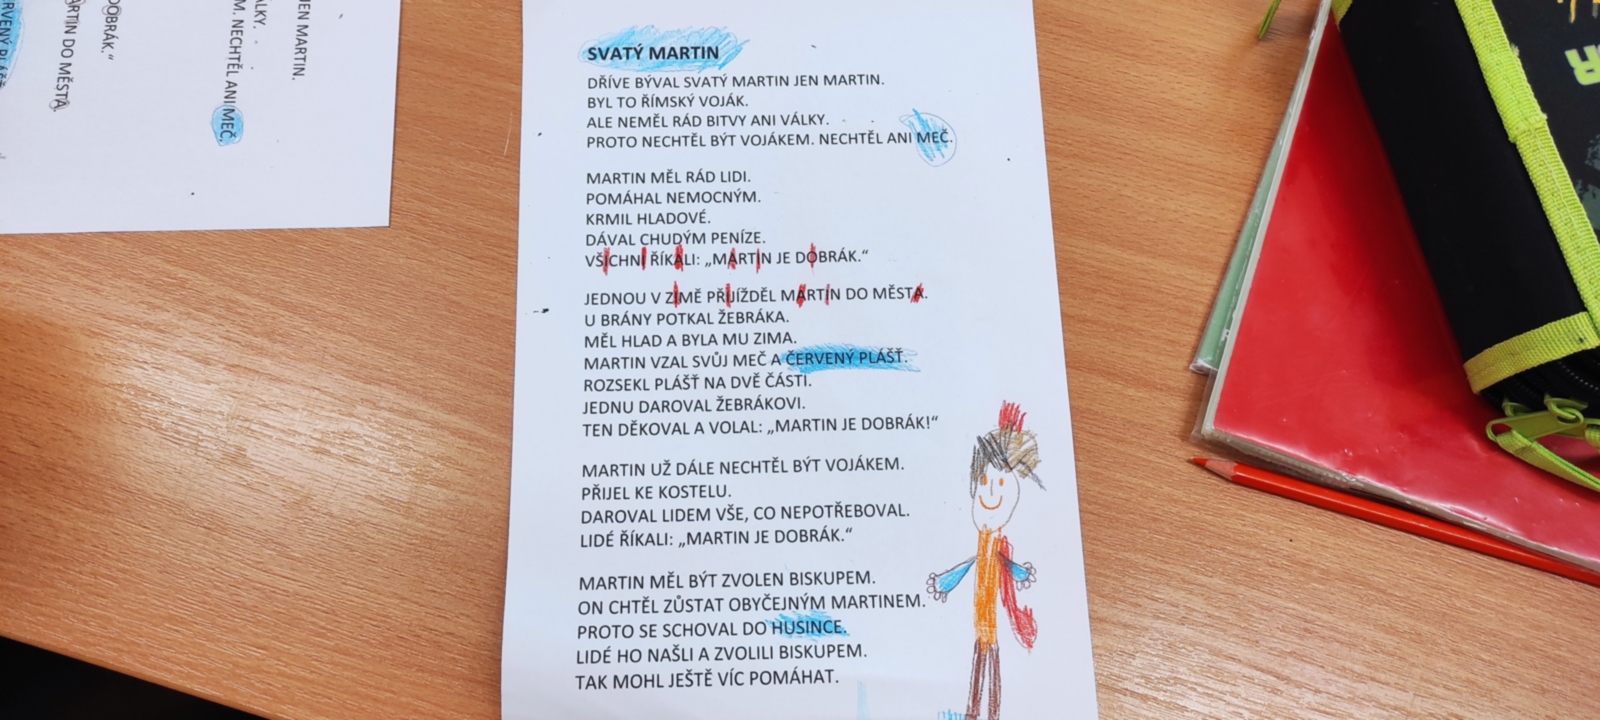 SVATÝ MARTIN
DŘÍVE BÝVAL SVATÝ MARTIN JEN MARTIN.
BYL TO ŘÍMSKÝ VOJÁK.
ALE NEMĚL RÁD BITVY ANI VÁLKY.
PROTO NECHTĚL BÝT VOJÁKEM. NECHTĚL ANI MEČ.
MARTIN MĚL RÁD LIDI.
POMÁHAL NEMOCNÝM.
KRMIL HLADOVÉ.
DÁVAL CHUDÝM PENÍZE.
VŠICHNI ŘÍKALI: „MARTIN JE DOBRÁK.“
JEDNOU V ZIMĚ PŘIJÍŽDĚL MARTIN DO MĚSTA.
U BRÁNY POTKAL ŽEBRÁKA.
MĚL HLAD A BYLA MU ZIMA.
MARTIN VZAL SVŮJ MEČ A ČERVENÝ PLÁŠŤ.
ROZSEKL PLÁŠŤ NA DVĚ ČÁSTI.
JEDNU DAROVAL ŽEBRÁKOVI.
TEN DĚKOVAL A VOLAL: „MARTIN JE DOBRÁK!“
MARTIN UŽ DÁLE NECHTĚL BÝT VOJÁKEM.
PŘIJEL KE KOSTELU.
DAROVAL LIDEM VŠE, CO NEPOTŘEBOVAL.
LIDÉ ŘÍKALI: „MARTIN JE DOBRÁK.“
MARTIN MĚL BÝT ZVOLEN BISKUPEM.
ON CHTĚL ZŮSTAT OBYČEJNÝM MARTINEM.
PROTO SE SCHOVAL DO HUSINCE.
LIDÉ HO NAŠLI A ZVOLILI BISKUPEM.
TAK MOHL JEŠTĚ VÍC POMÁHAT.
JEN MARTIN.
M. NECHTĚL ANI MEČ.
DOBRÁK.“
MARTIN DO MĚSTA.